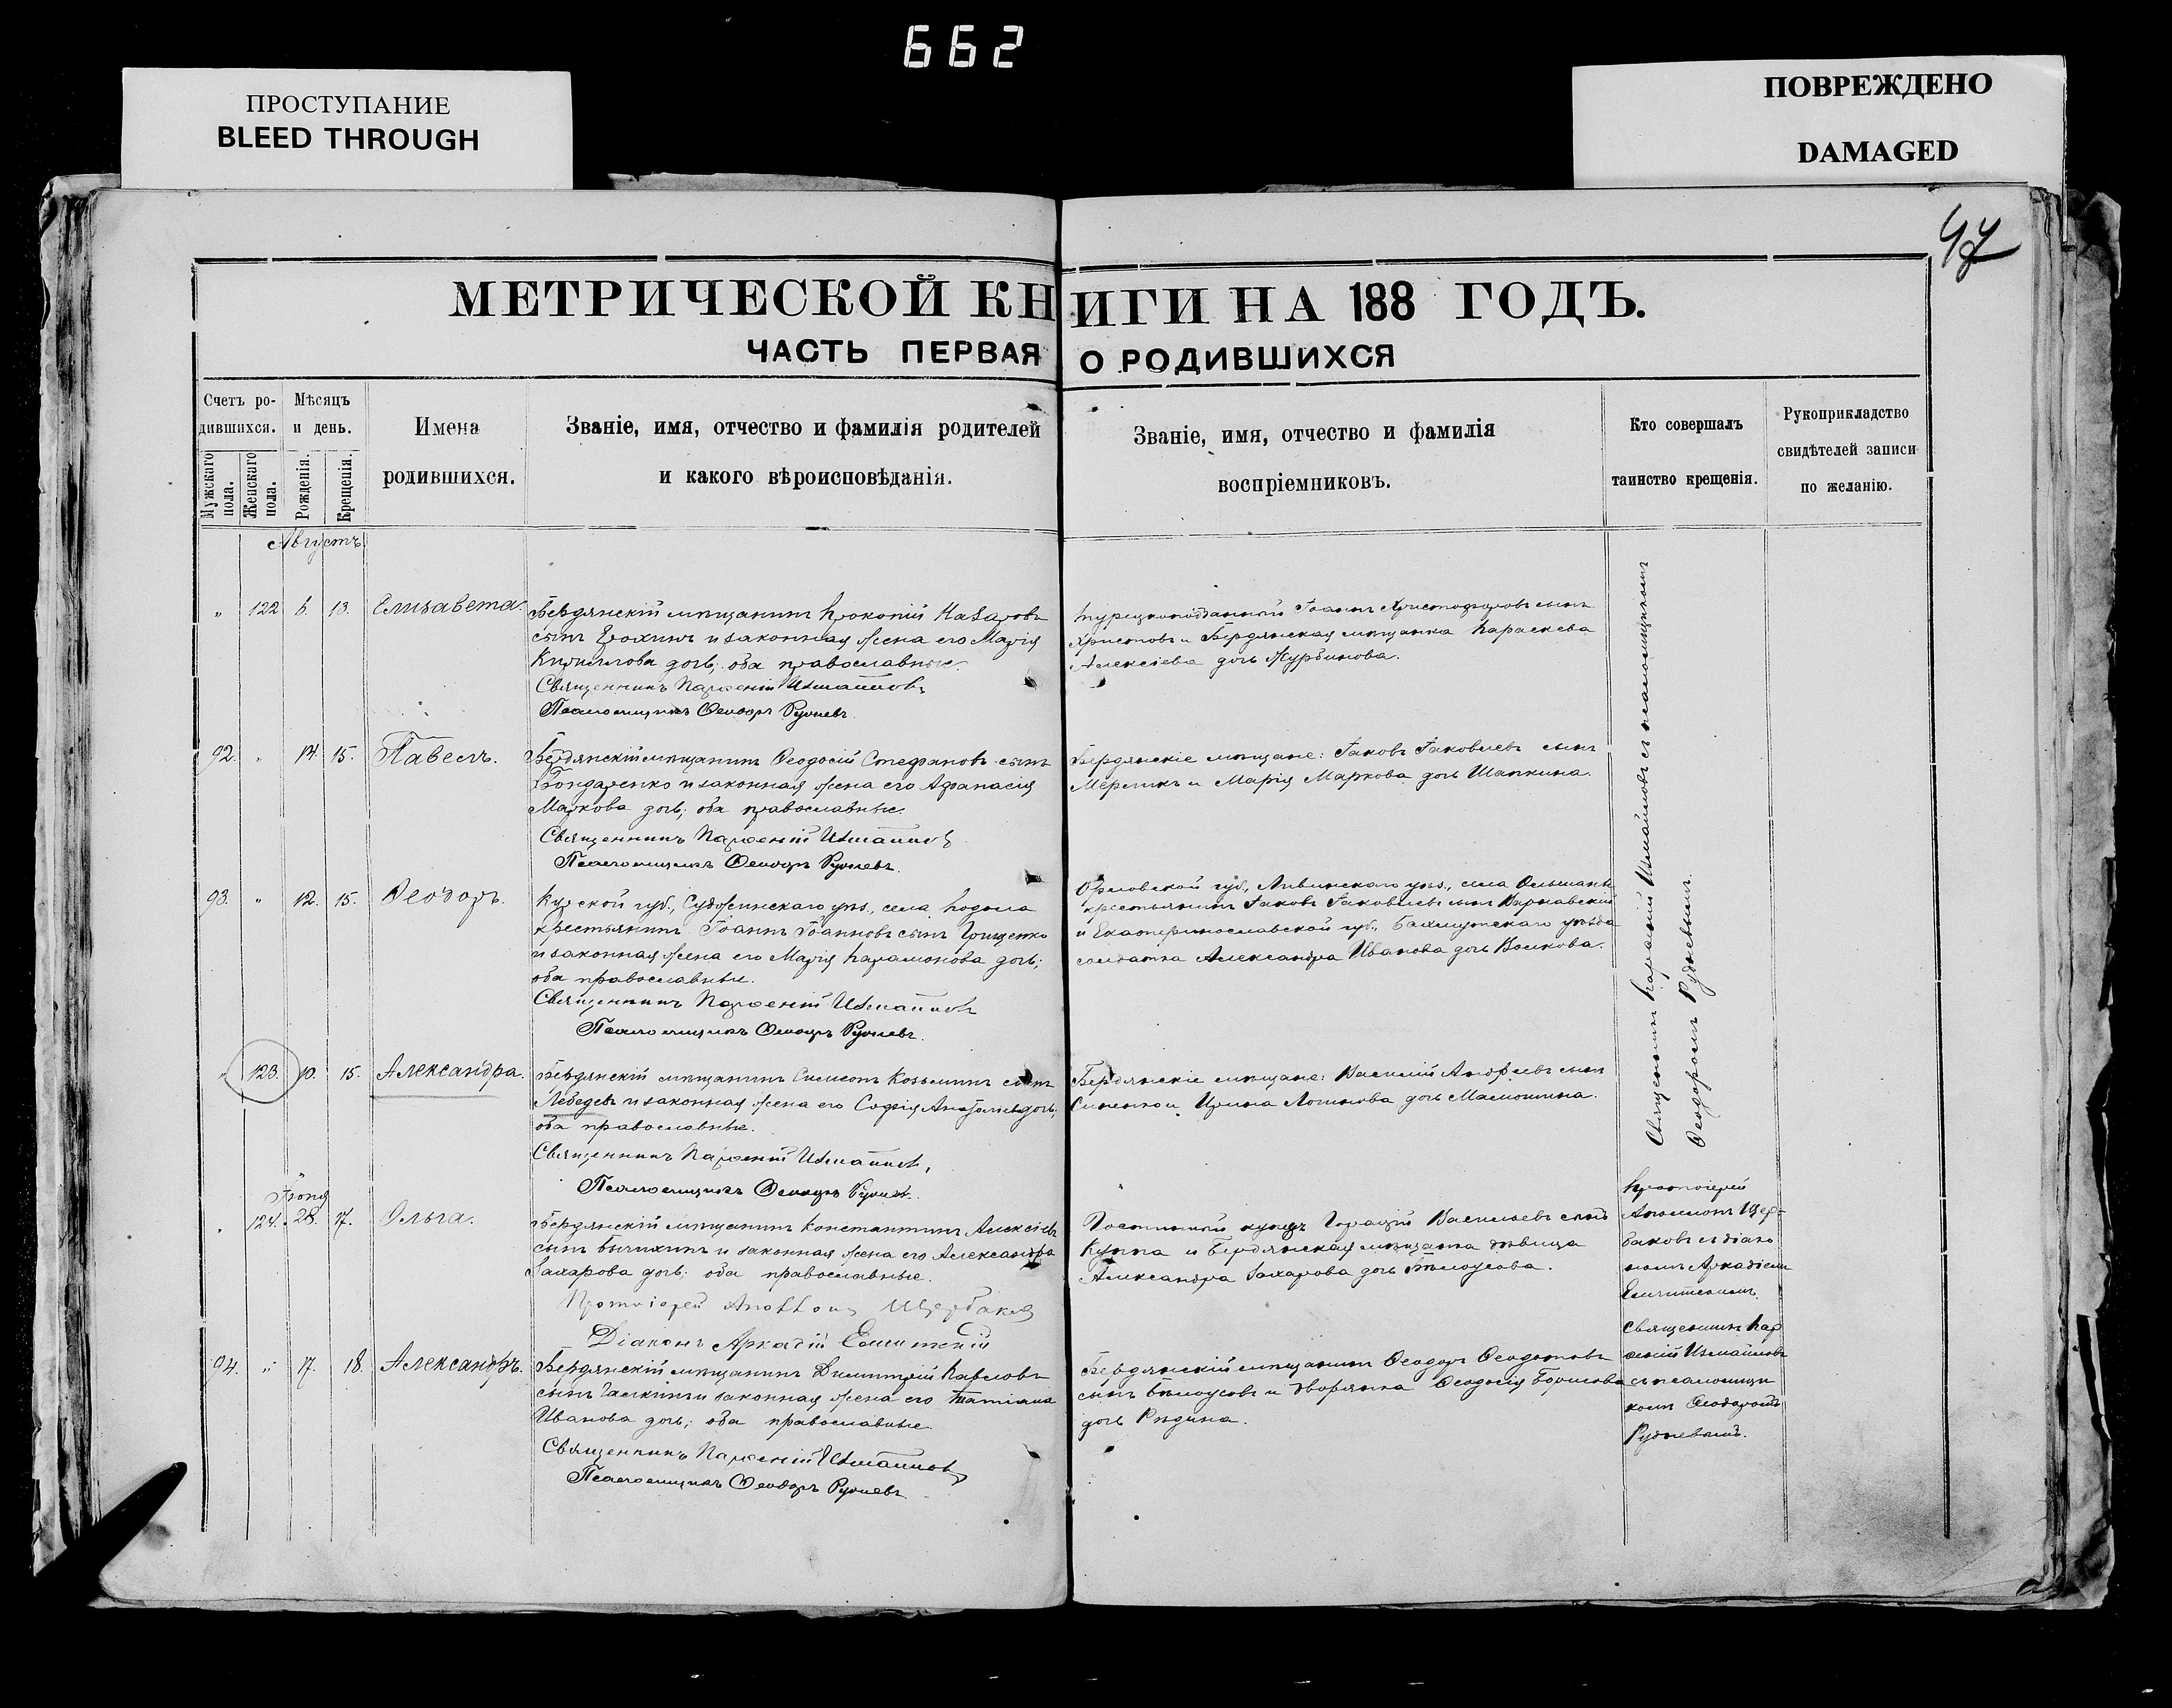 662
ПРОСТУПАНИЕ
BLEED THROUGH
ПОВРЕЖДЕНО
DAMAGED
47
МЕТРИЧЕСКОЙ КНИГИ НА 188 ГОДЪ.
ЧАСТЬ ПЕРВАЯ О РОДИВШИХСЯ
Счетъ ро-
дившихся.
Мужскаго пола.
Женскаго пола.
Мѣсяцъ
и день.
Рожденія.
Крещенія.
Имена
родившихся.
Званіе, имя, отчество и фамилія родителей
и какого вѣроисповѣданія.
Званіе, имя, отчество и фамилія
воспріемниковъ.
Кто совершалъ
таинство крещенія.
Рукоприкладство
свидѣтелей записи
по желанію.
Августъ
" 122 6. 13. Елизавета.
Бердянскій мѣщанинъ Прокопій Назаровъ
сынъ Ерохинъ и законная жена его Марія
Кириллова дочь; оба православные.
Священникъ Парѳеній Измаиловъ
Псаломщикъ Ѳеодоръ Рудневъ.
Турецкоподданный Іоаннъ Христофоровъ сынъ
Христовъ и Бердянская мѣщанка Параскева
Алексіева дочь Журбинова.
Священникъ Парѳеній Измаиловъ съ псаломщикомъ
Ѳеодоромъ Рудневымъ.
92. " 14. 15. Павелъ.
Бердянскій мѣщанинъ Ѳеодосій Стефановъ сынъ
Бондаренко и законная жена его Афанасія
Маркова дочь; оба православные.
Священникъ Парѳеній Измаиловъ
Псаломщикъ Ѳеодоръ Рудневъ.
Бердянскіе мѣщане: Іаковъ Іаковлевъ сынъ
Мерликъ и Марія Маркова дочь Шапкина.
93. " 12. 15. Ѳеодоръ.
Курской губ., Суджинскаго уѣз., села Подола
крестьянинъ Іоаннъ Іоанновъ сынъ Грищенко
и законная жена его Марія Парамонова дочь;
оба православные.
Священникъ Парѳеній Измаиловъ
Псаломщикъ Ѳеодоръ Рудневъ.
Орловской губ., Ливинскаго уѣз., села
крестьянинъ Іаковъ Іаковлевъ сынъ Варнавскій
и Екатеринославской губ., Бахмутскаго уѣзда
солдатка Александра Иванова дочь Волкова.
" 123. 10. 15. Александра.
Бердянскій мѣщанинъ Симеонъ Козьминъ сынъ
Лебедевъ и законная жена его Софія дочь;
оба православные.
Священникъ Парѳеній Измаиловъ,
Псаломщикъ Ѳеодоръ Рудневъ.
Бердянскіе мѣщане: Василій сынъ
Синенко и Ирина Логинова дочь Мамошина.
Іюня
" 124. 28. 17. Ольга.
Бердянскій мѣщанинъ Константинъ Алексіевъ
сынъ Бычихинъ и законная жена его Александра
Захарова дочь; оба православные.
Протоіерей Аполлонъ Щербаковъ
Діаконъ Аркадій
купецъ Горацій Васильевъ сынъ
Куппа и Бердянская мѣщанка дѣвица
Александра Захарова дочь Бѣлоусова.
Протоіерей
Аполлонъ Щер-
баковъ съ діако
номъ Аркадіемъ
94. " 17. 18. Александръ.
Бердянскій мѣщанинъ Димитрій Павловъ
сынъ Галкинъ и законная жена его Татіана
Иванова дочь; оба православные.
Священникъ Парѳеній Измаиловъ
Псаломщикъ Ѳеодоръ Рудневъ
Бердянскій мѣщанинъ Ѳеодоръ Ѳеодотовъ
сынъ Бѣлоусовъ и дворянка Ѳеодосія Борисова
дочь Рѣдина.
Священникъ Пар
ѳеній Измаиловъ
съ псаломщи
комъ Ѳеодоромъ
Рудневымъ.